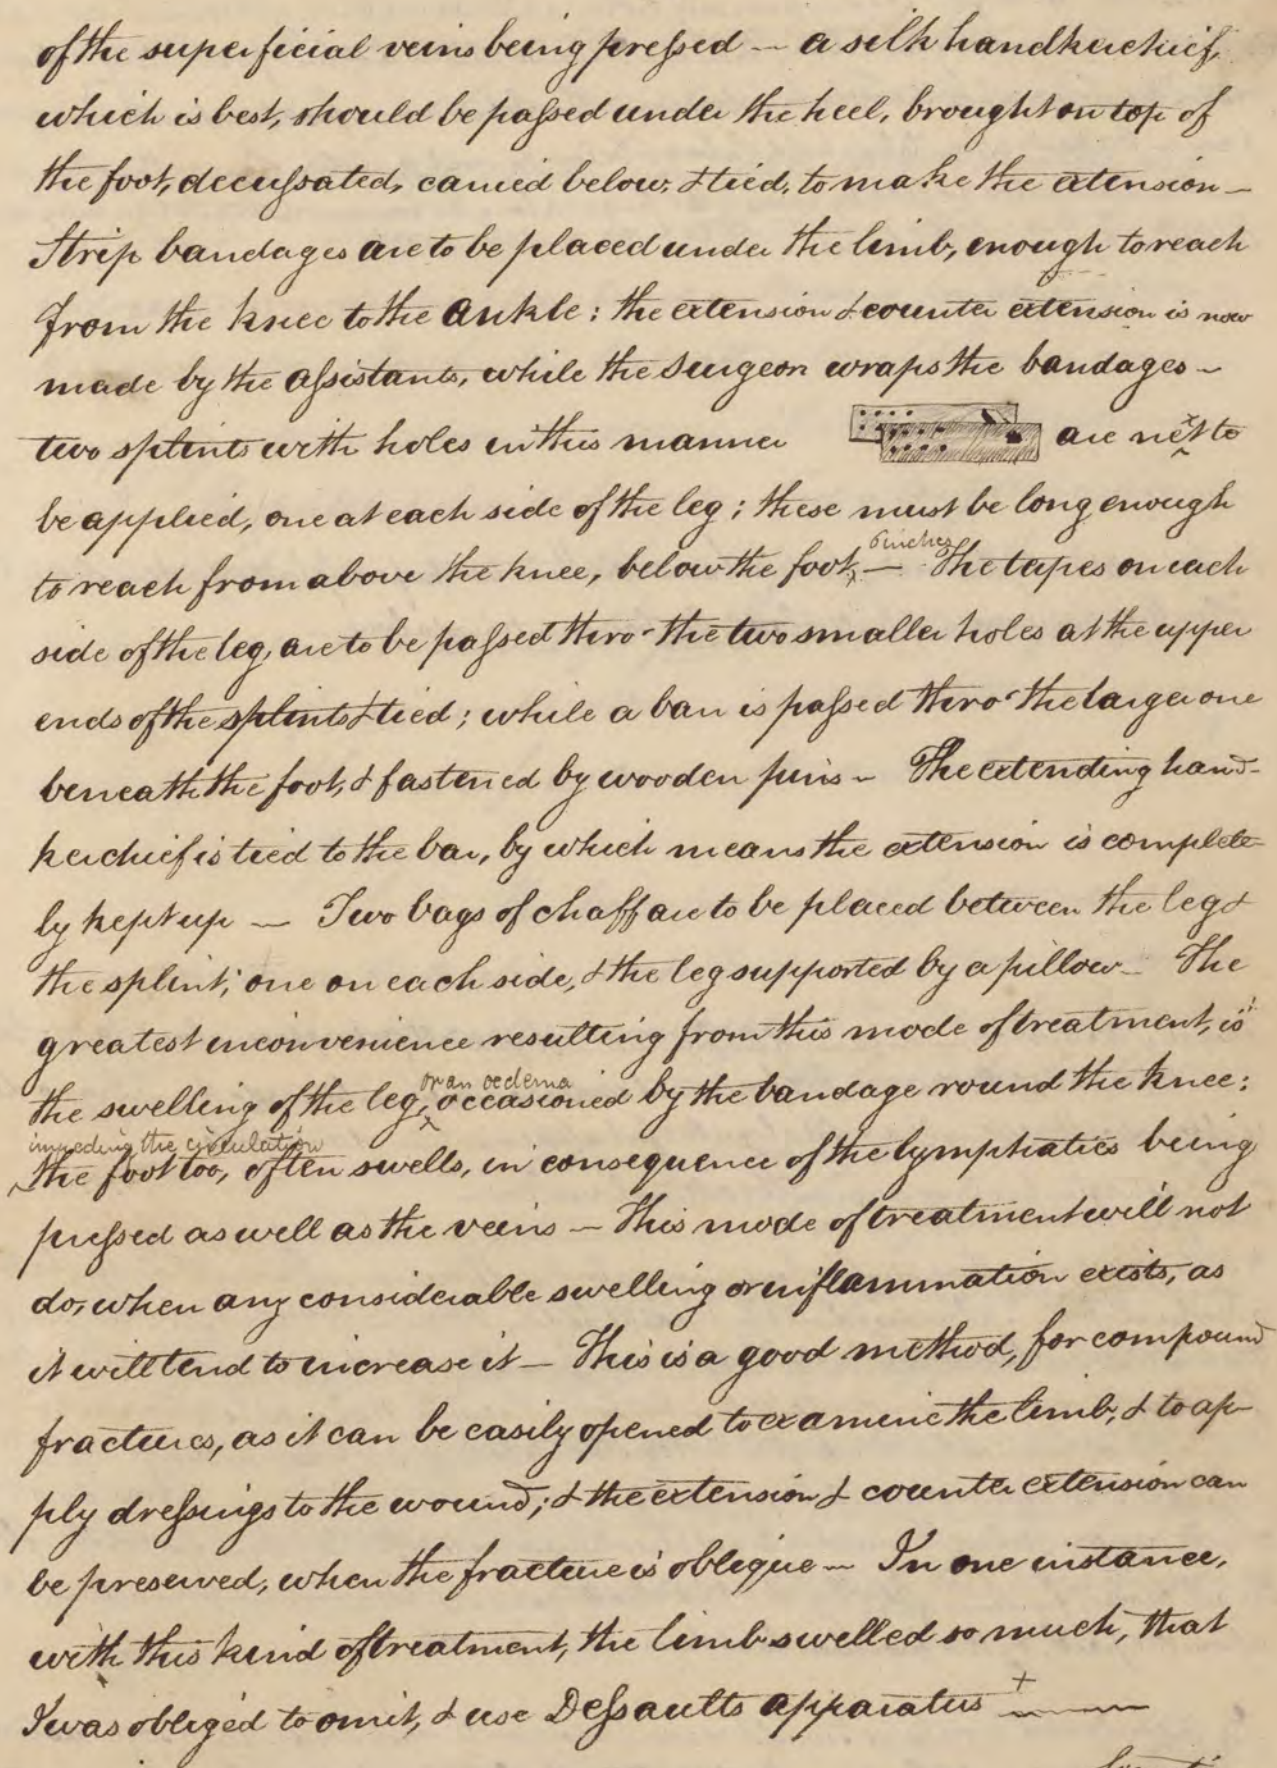 of the superficial veins being preſsed — a silk handkerchief,
which is best, should be paſsed under the heel, brought on top of
the foot, decuſsated, carried below, & tied, to make the extension —
Strip bandages are to be placed under the limb, enough to reach
from the knee to the ankle: the extension & counter extension is now
made by the aſsistants, while the surgeon wraps the bandages —
two splints with holes in this manner are next to
be applied, one at each side of the leg; these must be long enough
to reach from above the knee, below the foot, 6 inches — The tapes on each
side of the leg, are to be paſsed thro' the two smaller holes at the upper
ends of the splints & tied; while a bar is paſsed thro' the larger one
beneath the foot, & fastened by wooden pins — The extending hand-
kerchief is tied to the bar, by which means the extension is complete-
ly kept up — Two bags of chaff are to be placed between the leg &
the splint; one on each side, & the leg supported by a pillow — The
greatest inconvenience resulting from this mode of treatment, is
the swelling of the leg, or an oedema occasioned by the bandage round the knee:
impeding the circulation
the foot too, often swells, in consequence of the lymphatics being
preſsed as well as the veins — This mode of treatment will not
do, when any considerable swelling or inflammation exists, as
it will tend to increase it — This is a good method, for compound
fractures, as it can be easily opened to examine the limb, & to ap-
ply dreſsings to the wound; & the extension & counter extension can
be preserved, when the fracture is oblique — In one instance,
with this kind of treatment, the limb swelled so much, that
I was obliged to omit, & use Deſsaults apparatus +